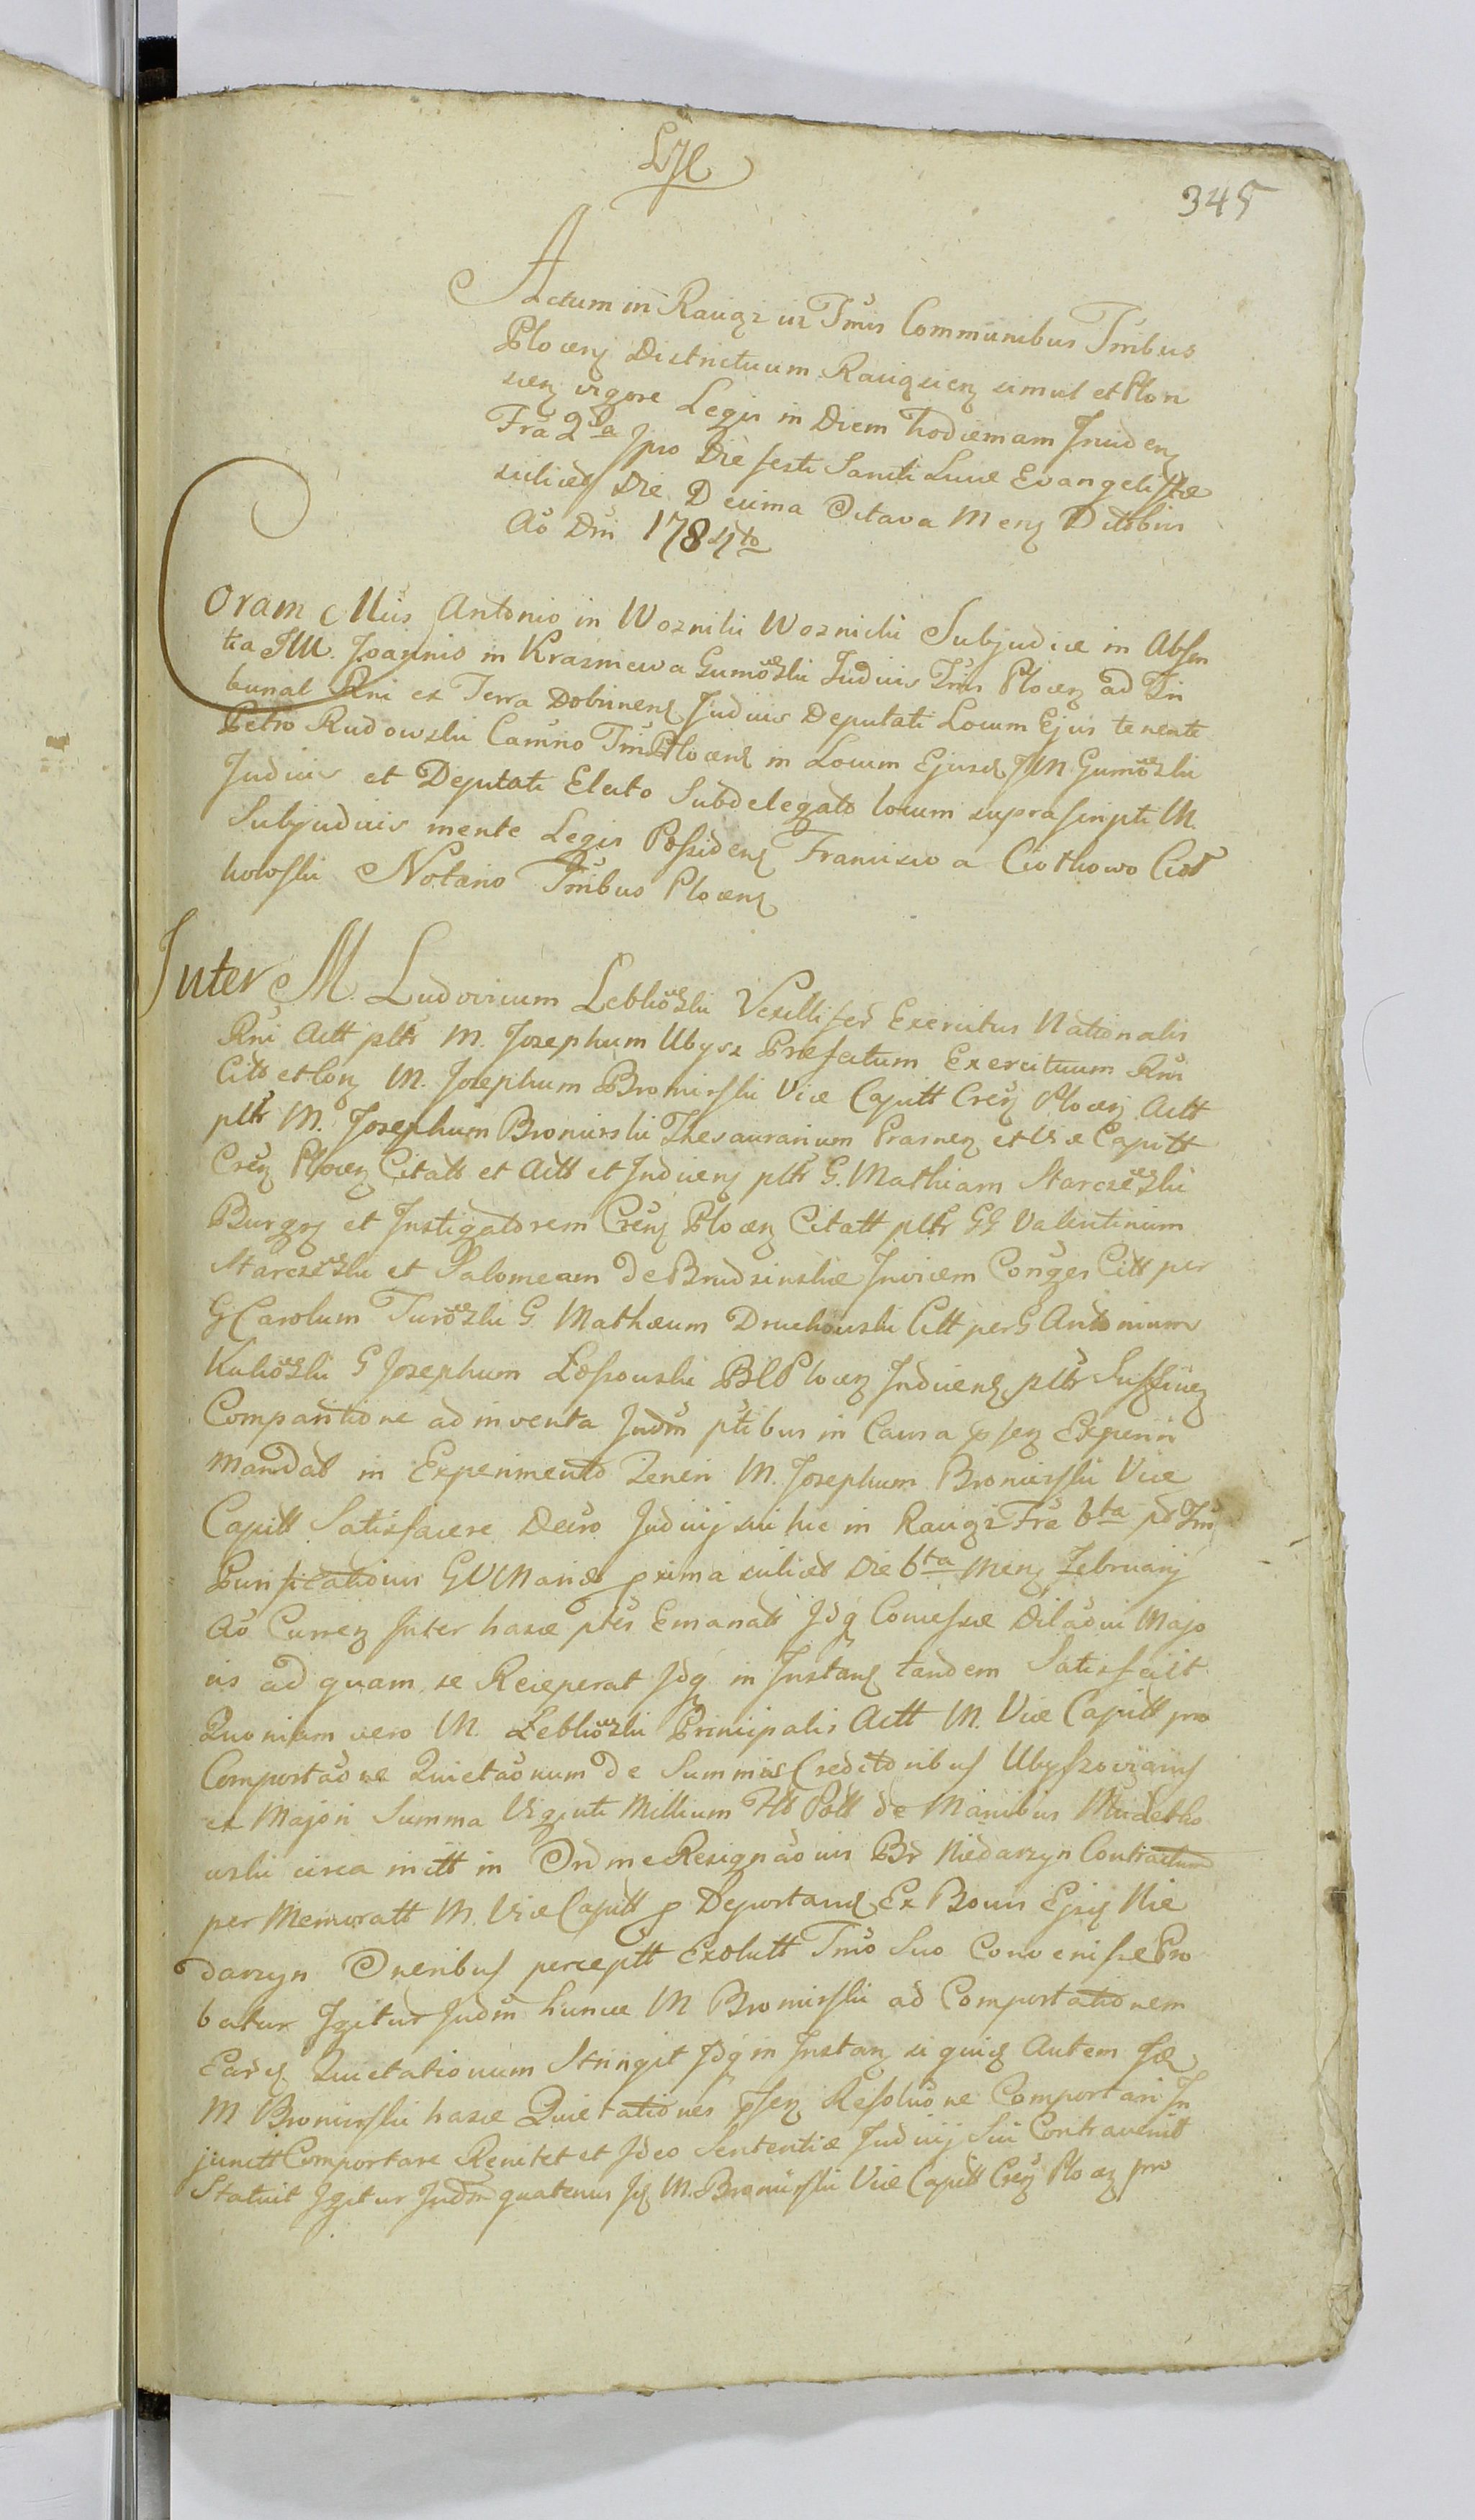 345
Actum in Raciąż in Tmis Communibus Tmibus
Plocen Districtuum Raciąscien simul et Plon
scen vigore Legis in Diem hodiernam Inciden
Fra 2da ipso Die festi Sancti Lucæ Evangelistæ
scilicet Die Decima Octava Mens Octobris
Ao Dni 1784to
Coram Mcis Antonio in Woznicki Woznicki Subjudice in Absen
tia JM. Joannis in Krasniewa Gumoski Judicis Tris Plocen ad Tri
bunal Rni ex Terra Dobrinens Judicis Deputati Locum Ejus tenente
Petro Rudowski Camrio Tmi Plocens in Locum Ejusd JM Gumoski
Judicis et Deputati Electo Subdelegato locum suprascripti M.
Subjudicis mente Legis Possidens Francisco a Ciotkowo Ciot
kowski Notario Tmibus Plocens
Inter M. Ludovicum Lebkoski Vexillifer Exercitus Nationalis
Rni Actt pltr M. Josephum Ubysz Præfectum Exercituum Rni
Citt et Con M. Josephum Bromirski Vice Capitt Cren Plocen Actt
pltr M. Josephum Bromirski Thesaurarium Prasnen et Vice Capitt
Cren Plocen Citatt et Actt et Inducens pltr G. Mathiam Starczeski
Burgr et Instigatorem Crens Plocen Citatt pltr GG Valentinum
Starczeski et Salomeam de Brudzinskie Invicem Conges Citt per
G Carolum Turoski G Mathæum Druchowski Citt per G Antonium
Kukoski G Josephum Lossowski BC Plocen Inducens pltr Sufficien
Comparitione adinventa Judm ptibus in Causa psen Experiri
Mandat in Experimento Teneri M. Josephum Bromirski Vice
Capitt Satisfacere Decro Judicij sui hic in Raciąż Fra 6ta pt Fm
Purificationis GVMariæ proxima scilicet Die 6ta Mens Februarij
Ao Curren Inter hasce ptes Emanatt Idq Concessæ Dilaonis Majo
ris ad quam se Reieperat Idq in Instans tandem Satisfecit
Quoniam vero M. Lebkoski Principalis Actt M. Vice Capitt pro
Comportaone Quietaonum de Summis Creditoribus Ubyszovianis
ex Majori Summa Viginti Millium Flt Poll de Manibus Mudetko
wski circa initt in Ordine Resignaonis Br Niedarzyn Contractum
per Memoratt M. Vice Capitt p Deportand Ex Bonis Ejusd Nie
darzyn Oneribus perceptt Exolutt Tmo Suo Convenisse Pro
batur Igitur Judm hunce M Bromirski ad Comportationem
Eard Quietationum Stringit Idq in Instan siquid Autem Idem
M Bromirski hasce Quietationes psen Resoluone Comportari In
junctt Comportare Renitet et Ideo Sententiæ Judicij Sui Contravenit
Statuit Igitur Judm quatenus Is M. Bromirski Vice Capitt Cren Plocen pro